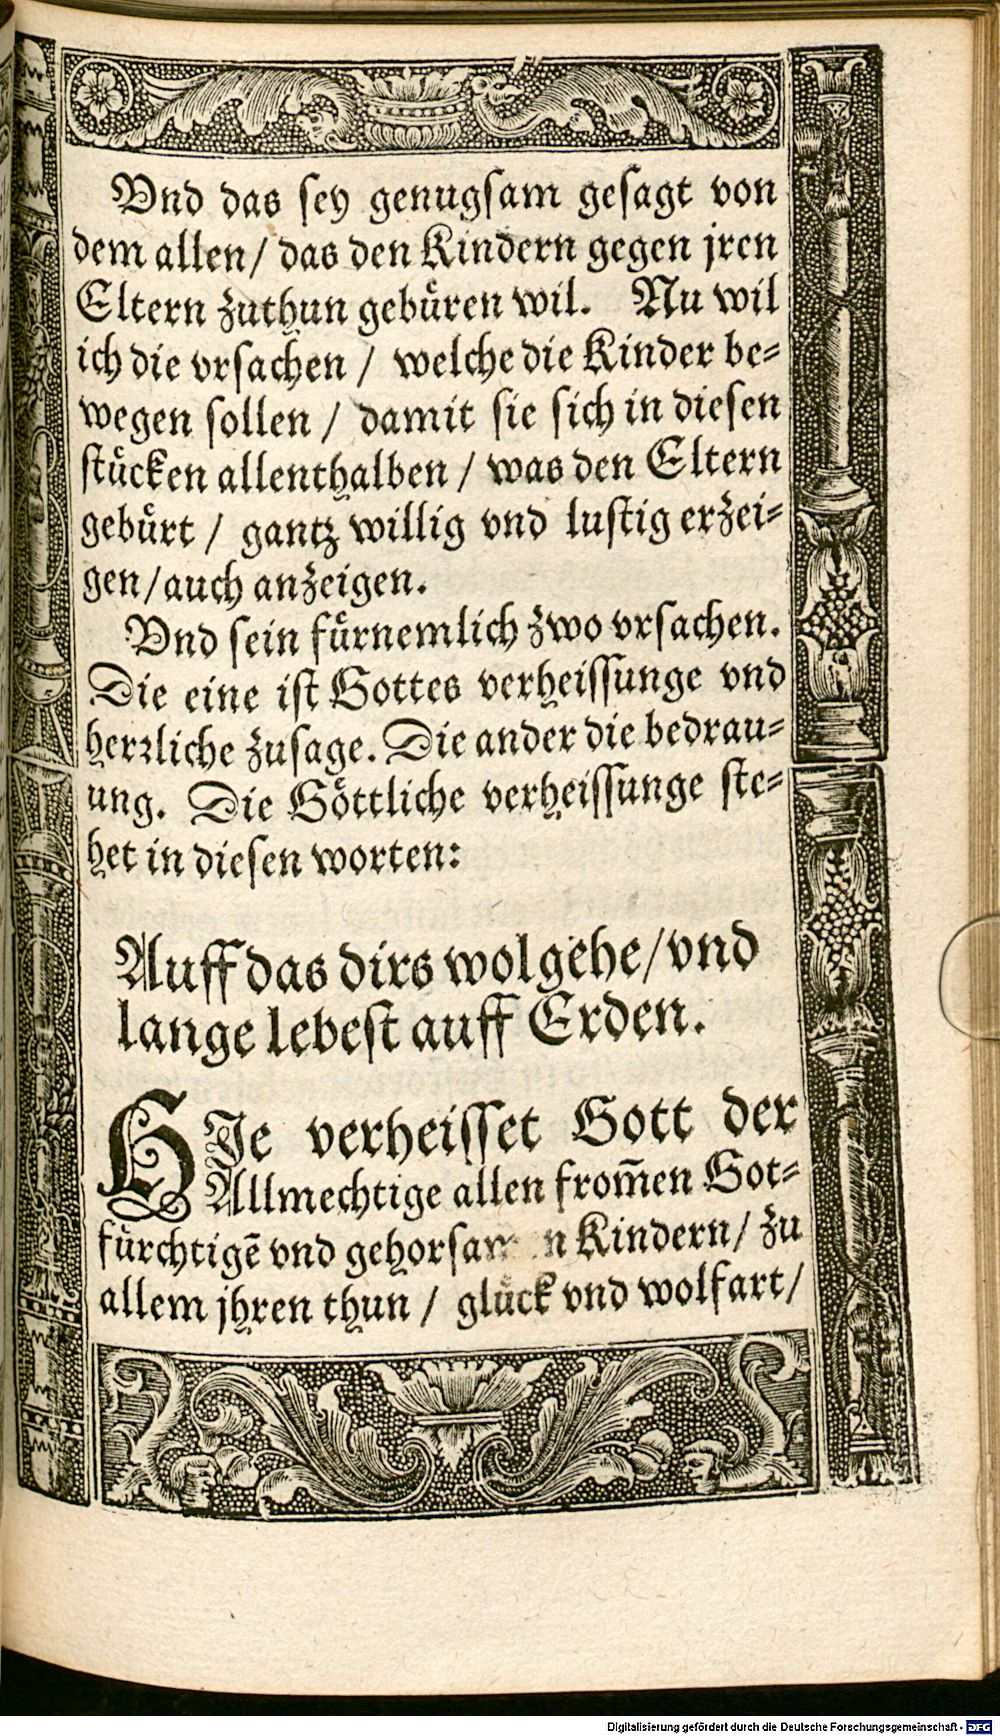 Vnd das sey genugsam gesagt von
dem allen / das den Kindern gegen jren
Eltern zuthun gebuͤren wil. Nu wil
ich die vrsachen / welche die Kinder be-
wegen sollen / damit sie sich in diesen
stuͤcken allenthalben / was den Eltern
gebuͤrt / gantz willig vnd lustig erzei-
gen / auch anzeigen.
Vnd sein fuͤrnemlich zwo vrsachen.
Die eine ist Gottes verheissunge vnd
hertzliche zusage. Die ander die bedrau-
ung. Die Goͤttliche verheissunge ste-
het in diesen worten:
Auff das dirs wolgehe / vnd
lange lebest auff Erden.
HIe verheisset Gott der
Allmechtige allen from̄en Got-
fuͤrchtigē vnd Kindern / zu
allem jhren thun / gluͤck vnd wolfart /
Digitalisierung gefördert durch die Deutsche Forschungsgemeinschaft - DFG